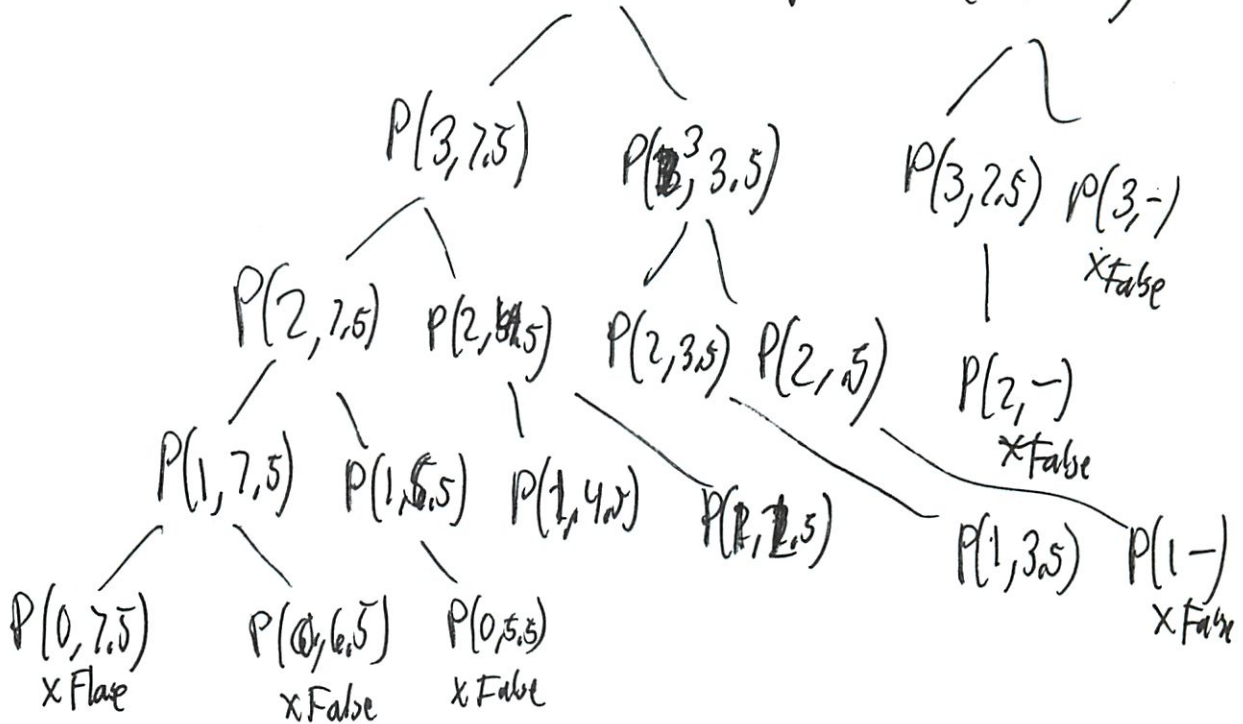 P(3,7.5) P(3,3.5) P(3,2.5) P(3,-)
x False
P(2,7.5) P(2,3.5) P(2,.5) P(2,-)
x False
P(1,7.5) P(1,4.5) P(1,3.5) P(1-)
x False
P(0,7.5) P(0,6.5) P(0,5.5)
x Flase x False x False